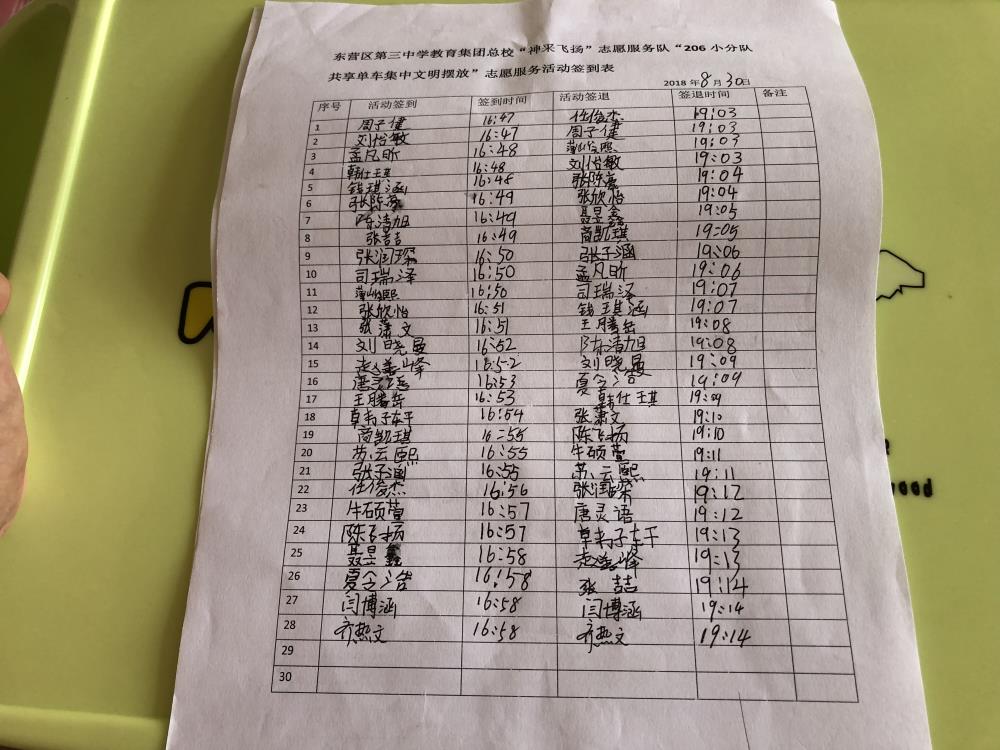 东营区第三中学教育集团总校“神采飞扬”志愿服务队“206 小分队
共享单车集中文明摆放”志愿服务活动签到表
2018 年 8 月 30 日
序号 活动签到 签到时间 活动签退 签退时间 备注
1 周子健 16:47 任俊杰 19:03
2 刘怡敏 16:47 周子健 19:03
3 孟凡昕 16:48 19:03
4 韩仕琪 16:48 刘怡敏 19:03
5 钱琪涵 16:48 19:04
6 16:49 张欣怡 19:04
7 陈清旭 16:49 聂昱鑫 19:05
8 张喆 16:49 商凯琪 19:05
9 张润琛 16:50 张子涵 19:06
10 司瑞泽 16:50 孟凡昕 19:06
11 16:50 司瑞泽 19:07
12 张欣怡 16:51 钱琪涵 19:07
13 张潇文 16:51 王腾岳 19:08
14 刘晓曼 16:52 陈清旭 19:08
15 16:52 刘晓曼 19:09
16 16:53 夏令浩 19:09
17 王腾岳 16:53 韩仕琪 19:09
18 16:54 张潇文 19:10
19 商凯琪 16:55 陈飞扬 19:10
20 苏云熙 16:55 牛硕萱 19:11
21 张子涵 16:55 苏云熙 19:11
22 任俊杰 16:56 张润琛 19:12
23 牛硕萱 16:57 唐灵语 19:12
24 陈飞扬 16:57 19:13
25 聂昱鑫 16:58 19:13
26 夏令浩 16:58 张喆 19:14
27 闫博涵 16:58 闫博涵 19:14
28 齐热文 16:58 齐热文 19:14
29
30
ood